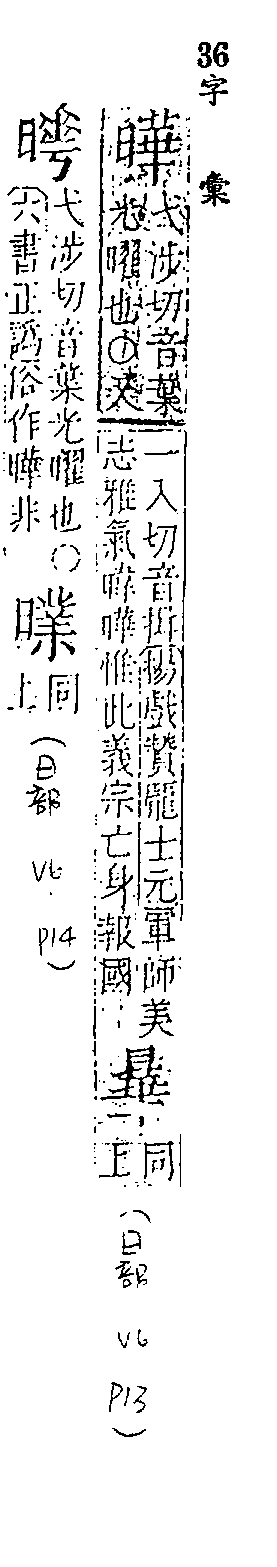 36
字彙
曄 弋涉切音葉
光曜也〇又
一入切音揖楊戲贊龐士元軍師美
志雅氣曄曄惟此義宗亡身報國
同
上
(日部 V6 P13)
弋涉切音葉光曜也〇
六書正譌俗作曄非
㬪 同
上
(日部 V6. P14)